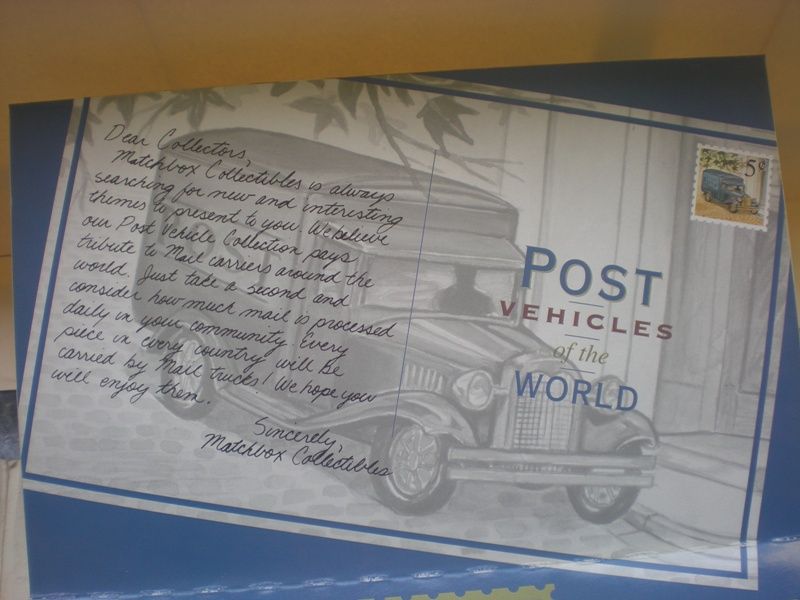 Dear Collectors,
Matchbox Collectibles is always
searching for new and interesting
themes to present to you. We believe
our Post Vehicle Collection pays
tribute to Mail carriers around the
world. Just take a second and
consider how much mail is processed
daily in your community. Every
piece in every country will be
carried by Mail trucks! We hope you
will enjoy them.
Sincerely,
Matchbox Collectibles
5¢
POST
VEHICLES
of the
WORLD